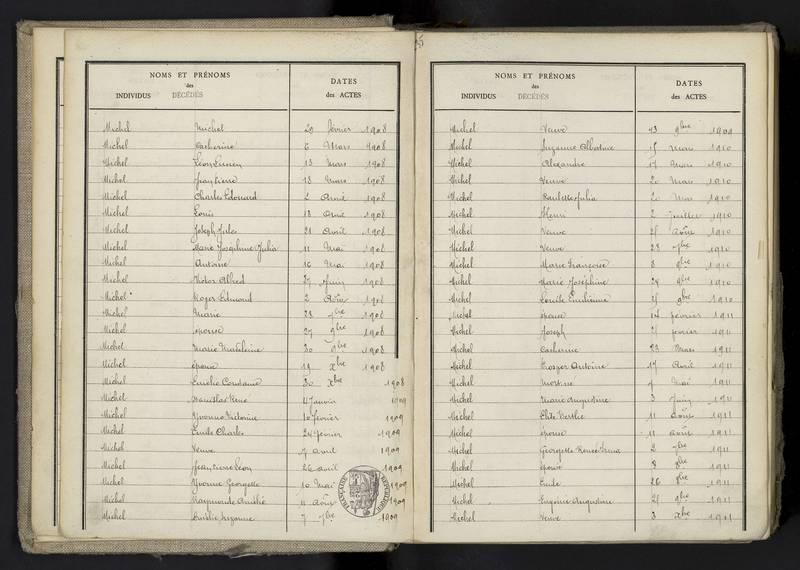 NOMS ET PRÉNOMS
des
INDIVIDUS DÉCÉDÉS
DATES
des ACTES
Michel Michel 29 février 1908
Michel Catherine 6 Mars 1908
Michel Léon Lucien 13 Mars 1908
Michel Jean Pierre 18 Mars 1908
Michel Charles Edouard 2 Avril 1908
Michel Louis 18 Avril 1908
Michel Joseph Jules 21 Avril 1908
Michel Marie Joséphine Julia 11 Mai 1908
Michel Antoine 16 Mai 1908
Michel Victor Alfred 27 Juin 1908
Michel Roger Edmond 2 Août 1908
Michel Marie 28 7bre 1908
Michel épouse 27 9bre 1908
Michel Marie Madeleine 30 9bre 1908
Michel épouse 19 Xbre 1908
Michel Emilie Constance 30 Xbre 1908
Michel Stanislas René 4 Janvier 1909
Michel Yvonne Victorine 10 février 1909
Michel Emile Charles 24 février 1909
Michel Veuve 7 avril 1909
Michel Jean Pierre Léon 26 avril 1909
Michel Yvonne Georgette 10 Mai 1909
Michel Raymonde 11 Août 1909
Michel Suzanne 7 7bre 1909
RÉPUBLIQUE FRANÇAISE
NOMS ET PRÉNOMS
des
INDIVIDUS DÉCÉDÉS
DATES
des ACTES
Michel Veuve 23 9bre 1909
Michel Suzanne 15 Mars 1910
Michel Alexandre 17 Mars 1910
Michel Veuve 20 Mars 1910
Michel Paulette Julia 20 Mai 1910
Michel Henri 2 Juillet 1910
Michel Veuve 25 Août 1910
Michel Veuve 28 7bre 1910
Michel Marie Françoise 8 9bre 1910
Michel Marie Joséphine 24 9bre 1910
Michel Emilienne 25 9bre 1910
Michel épouse 14 février 1911
Michel Joseph 21 février 1911
Michel Catherine 23 Mars 1911
Michel Prosper Antoine 17 Avril 1911
Michel mort-né 7 Mai 1911
Michel Marie Augustine 3 Juin 1911
Michel Berthe 11 Août 1911
Michel épouse 11 août 1911
Michel Georgette Renée 2 7bre 1911
Michel épouse 8 8bre 1911
Michel Emile 26 8bre 1911
Michel Eugénie Augustine 21 9bre 1911
Michel Veuve 3 Xbre 1911